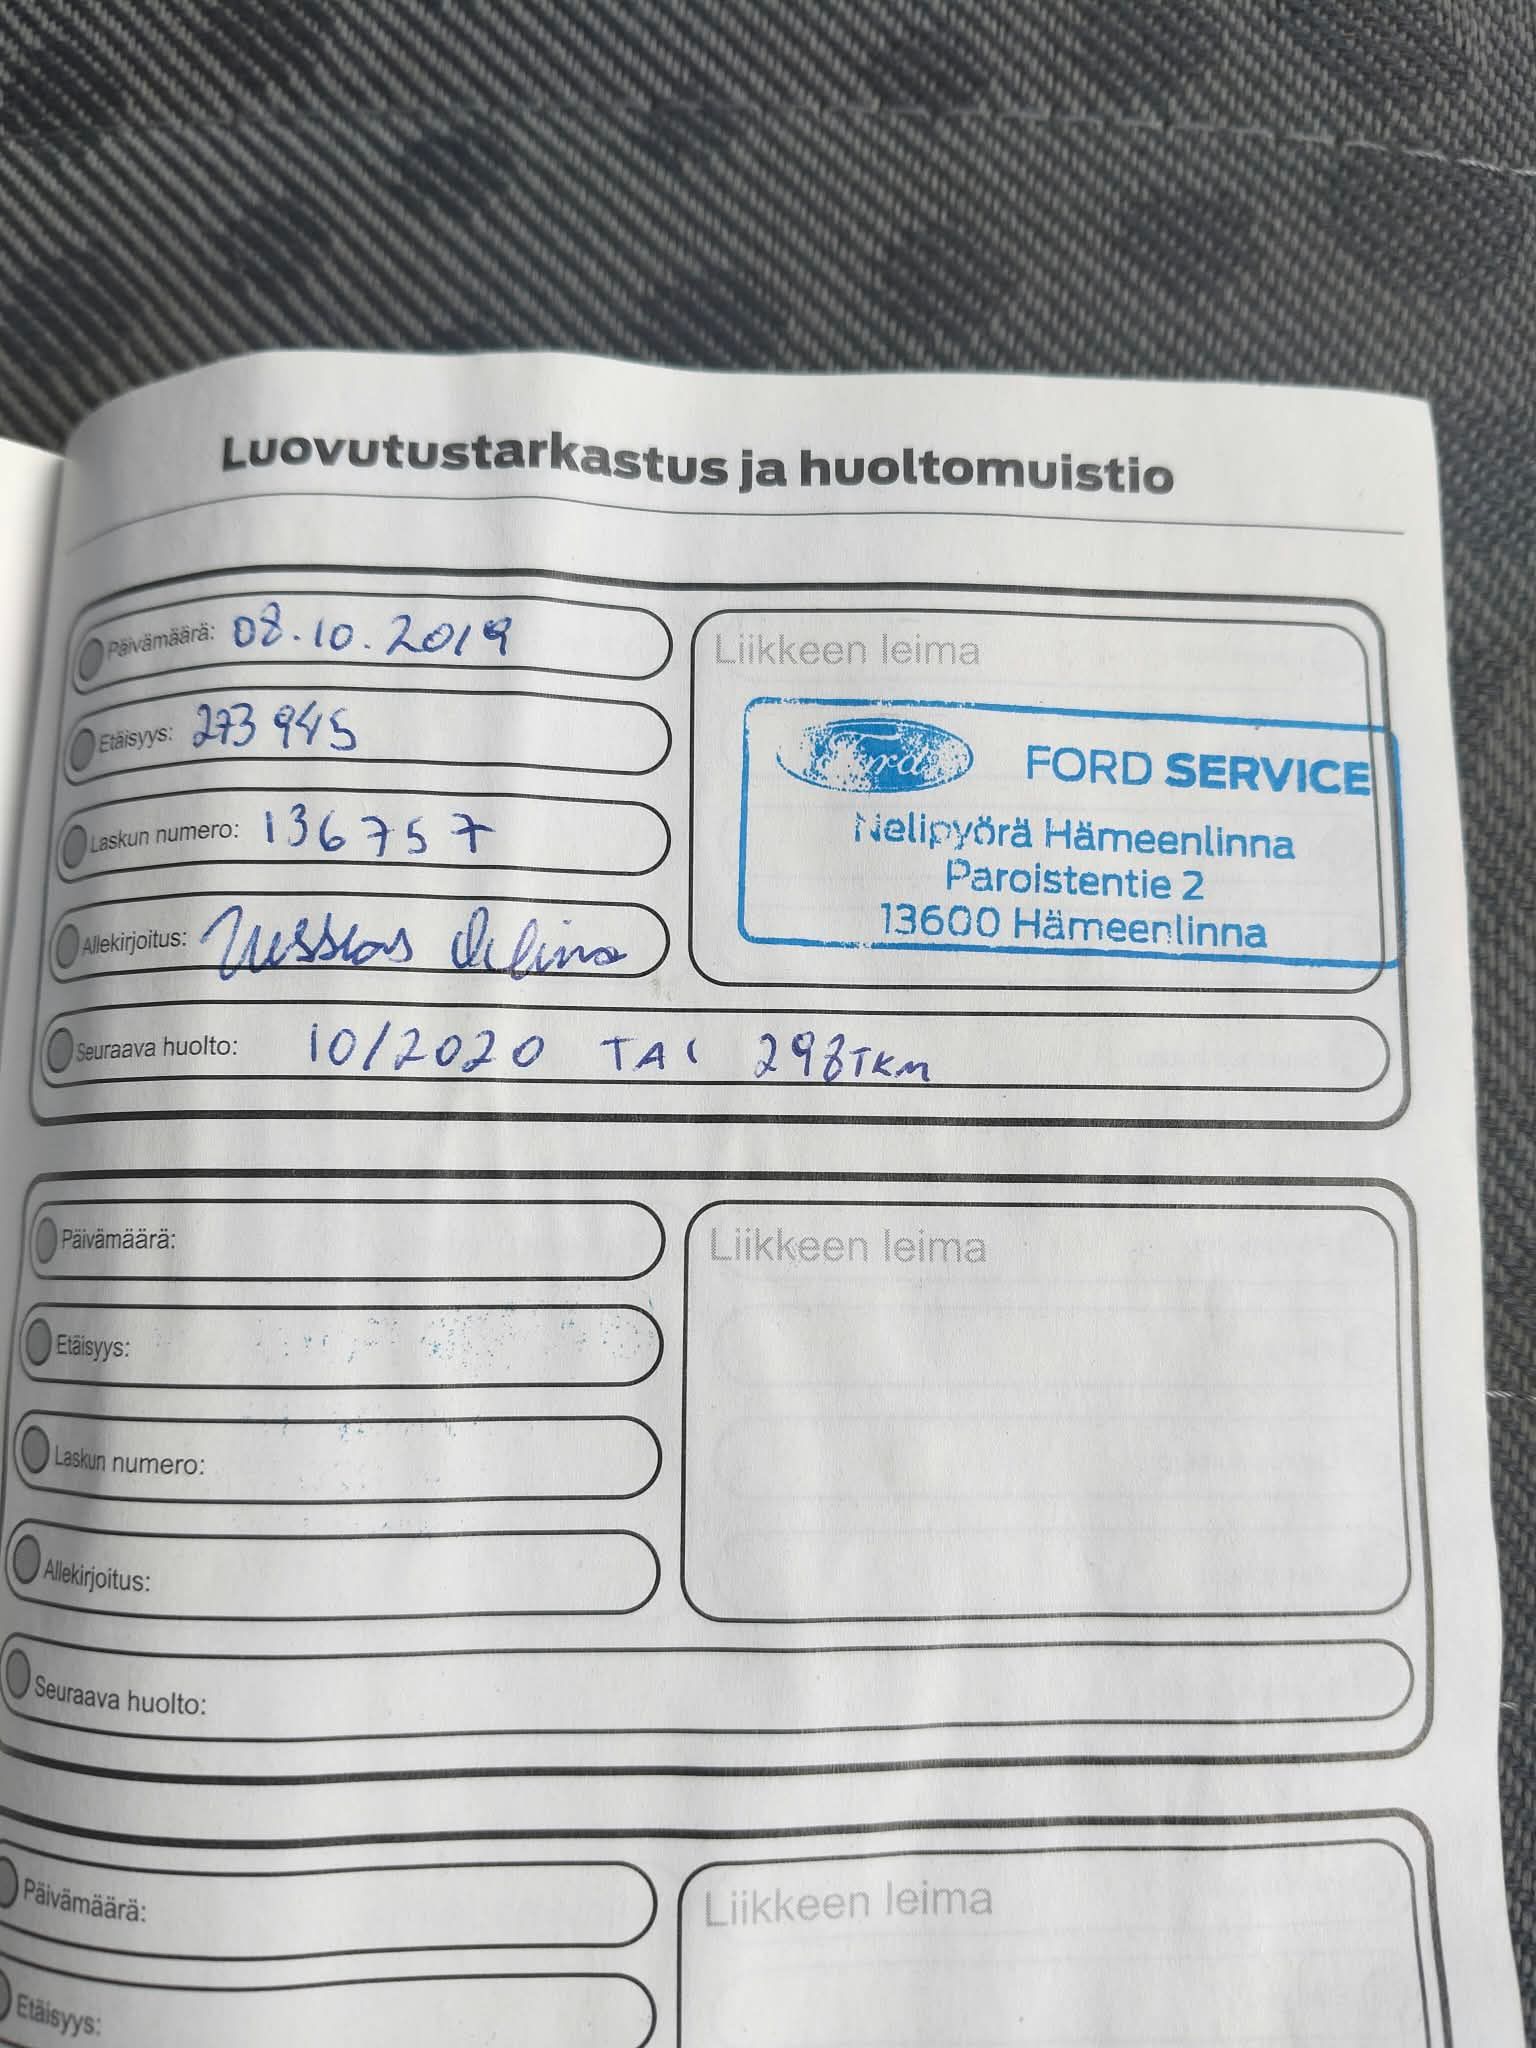 Luovutustarkastus ja huoltomuistio
Päivämäärä: 08.10.2019
Etäisyys: 273945
Laskun numero: 136757
Allekirjoitus:
Liikkeen leima
Ford FORD SERVICE
Nelipyörä Hämeenlinna
Paroistentie 2
13600 Hämeenlinna
Seuraava huolto: 10/2020 TAI 298TKM
Päivämäärä:
Etäisyys:
Laskun numero:
Allekirjoitus:
Liikkeen leima
Seuraava huolto:
Päivämäärä:
Etäisyys:
Liikkeen leima